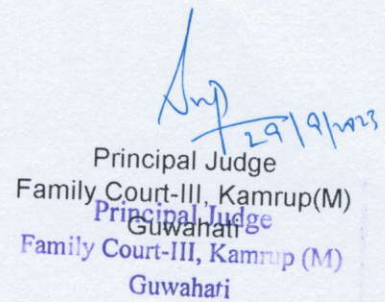 29/9/2023
Principal Judge
Family Court-III, Kamrup(M)
Guwahati
Principal Judge
Family Court-III, Kamrup (M)
Guwahati